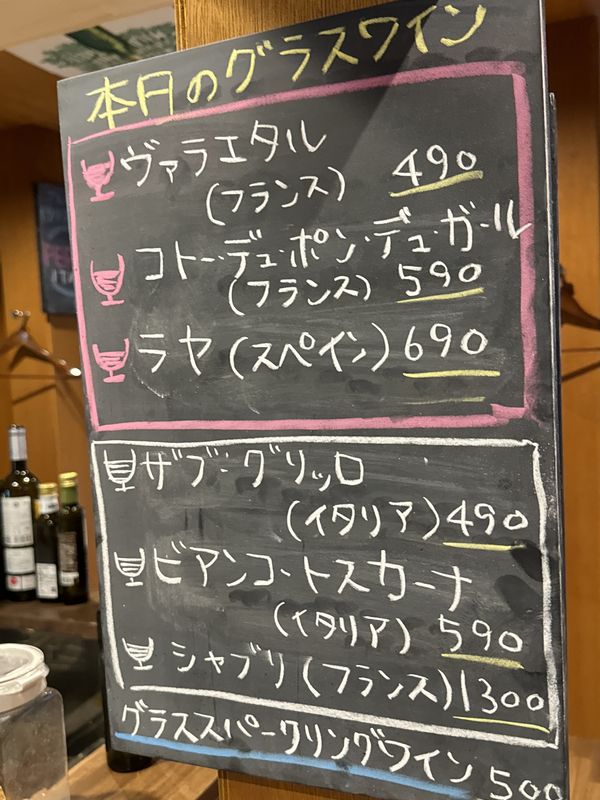 本日のグラスワイン
ヴァラエタル
(フランス) 490
コトー・デュ・ポン・デュ・ガール
(フランス) 590
ラヤ(スペイン) 690
ザブ・グリッロ
(イタリア) 490
ビアンコ・トスカーナ
(イタリア) 590
シャブリ(フランス) 1300
グラススパークリングワイン 500